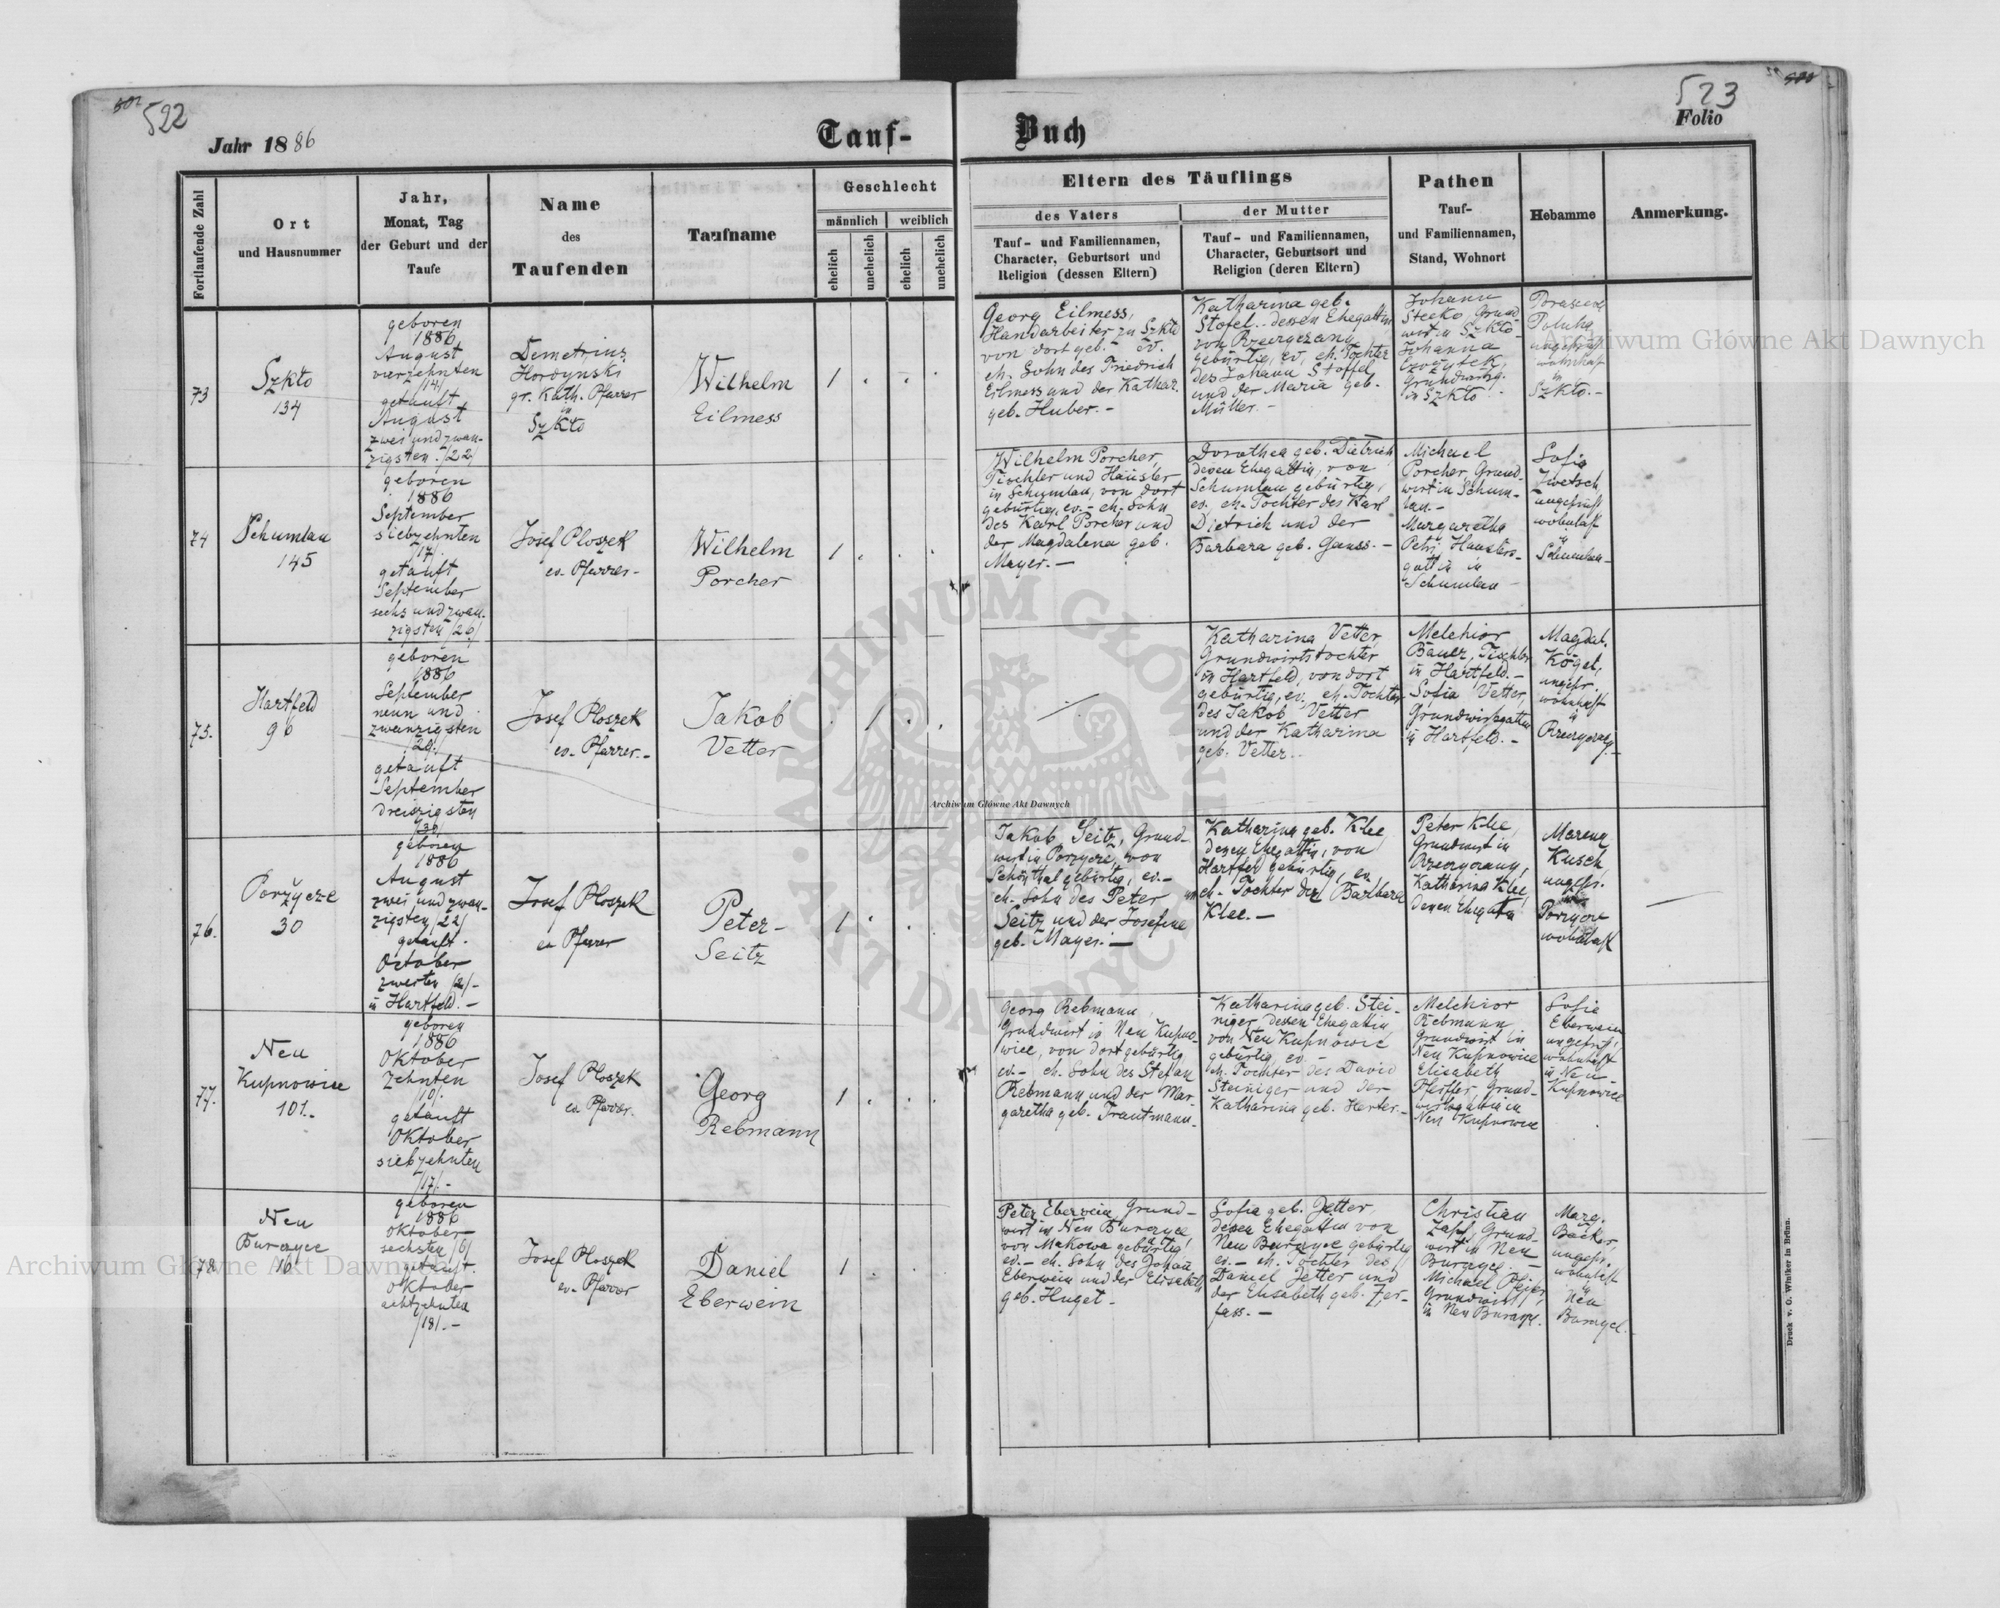 522
Jahr 1886
Tauf-
Buch
523
Folio
Fortlaufende Zahl
Ort
und Hausnummer
Jahr,
Monat, Tag
der Geburt und der
Taufe
Name
des
Taufenden
Taufname
Geschlecht
männlich
weiblich
ehelich
unehelich
ehelich
unehelich
Eltern des Täuflings
des Vaters
Tauf- und Familiennamen,
Character, Geburtsort und
Religion (dessen Eltern)
der Mutter
Tauf- und Familiennamen,
Character, Geburtsort und
Religion (deren Eltern)
Pathen
Tauf-
und Familiennamen,
Stand, Wohnort
Hebamme
Anmerkung.
73
Szkło
134
geboren
1886
August
vierzehnten
/14/
getauft
August
zwei und zwan-
zigsten /22/
Demetrius
Hordynski
gr. Kath. Pfarrer
in
Szkło
Wilhelm
Eilmess
1
Georg Eilmess,
Handarbeiter zu Szkło
von dort geb. - ev.
eh. Sohn des Friedrich
Eilmess und der Kathar.
geb. Huber. -
Katharina geb.
Stofel.. dessen Ehegattin
von
gebürtig, ev. eh. Tochter
des Johann Stoffel
und der Maria geb.
Müller. -
Johann
Stecko, Grund-
wirt in Szkło
Johanna
Grundwirtsg.
in Szkło
wohnhaft
in
Szkło. -
74
Schumlau
145
geboren
1886
September
siebzehnten
/17/
getauft
September
sechs und zwan-
zigsten /26/
Josef Ploszek
ev. Pfarrer -
Wilhelm
Porcher
1
Wilhelm Porcher,
Tischler und Häusler
in Schumlau, von dort
gebürtig, ev. - eh. Sohn
des Karl Porcher und
der Magdalena geb.
Mayer. -
Dorothea geb. Dietrich
dessen Ehegattin, von
Schumlau gebürtig,
ev. eh. Tochter des Karl
Dietrich und der
Barbara geb. Gauss. -
Michael
Porcher, Grund-
wirt in Schum-
lau. -
Margaretha
Petri, Häuslers-
gattin in
Schumlau -
Sofia
Zwetsch
ungeprüft
wohnhaft
in
Schumlau -
75.
Hartfeld
96
geboren
1886
September
neun und
zwanzigsten
/29/
getauft
September
dreizigsten
/30/
Josef Ploszek
ev. Pfarrer. -
Jakob
Vetter
1
Katharina Vetter
Grundwirtstochter
in Hartfeld, von dort
gebürtig, ev. eh. Tochter
des Jakob Vetter
und der Katharina
geb. Vetter. -
Melchior
Bauer, Tischler
in Hartfeld. -
Sofia Vetter,
Grundwirtsgattin
in Hartfeld. -
Magdal.
Kögel,
ungepr.
wohnhaft
in
76.
Porzycze
30
geboren
1886
August
zwei und zwan-
zigsten /22/
getauft
October
zweiten /2/ -
in Hartfeld. -
Josef Ploszek
ev Pfarrer
Peter -
Seitz
1
Jakob Seitz, Grund-
wirt in Porzycze, von
Schönthal gebürtig, ev. -
eh. Sohn des Peter
Seitz und der Josefine
geb. Mayer. -
Katharina geb. Klee
dessen Ehegattin, von
Hartfeld gebürtig, ev.
eh. Tochter der Barbara
Klee. -
Peter Klee,
Grundwirt in
Katharina Klee
dessen Ehegattin
Kusch,
ungepr.
in
Porzycze
wohnhaft
77.
Neu
Kupnowice
101. -
geboren
1886
Oktober
zehnten
/10/
getauft
Oktober
siebzehnten
/17/. -
Josef Ploszek
ev Pfarrer.
Georg
Rebmann
1
Georg Rebmann,
Grundwirt in Neu Kupno-
wice, von dort gebürtig
ev. - eh. Sohn des Stefan
Rebmann und der Mar-
garetha geb. Trautmann. -
Katharina geb. Stei-
niger, dessen Ehegattin
von Neu Kupnowice
gebürtig, ev. -
eh. Tochter des David
Steiniger und der
Katharina geb. Herter. -
Melchior
Rebmann
Grundwirt in
Neu Kupnowice
Elisabeth
Pfeiffer, Grund-
wirtsgattin in
Neu Kupnowice
Sofie
Eberwein
ungeprüft,
wohnhaft
in Neu -
Kupnowice
78.
Neu
Burczyce
16
geboren
1886
Oktober
sechsten /6/
getauft.
Oktober
achtzehnten
/18/. -
Josef Ploszek
ev. Pfarrer
Daniel
Eberwein
1
Peter Eberwein, Grund-
wirt in Neu Burczyce
von Makowa gebürtig,
ev. - eh. Sohn des Johann
Eberwein und der Elisabeth
geb. Huget. -
Sofia geb. Jetter,
dessen Ehegattin von
Neu Burczyce gebürtig
ev. - eh. Tochter des
Daniel Jetter und
der Elisabeth geb. Zer-
fass. -
Christian
Zapf, Grund-
wirt in Neu
Burczyce. -
Michael
Grundwirt
in Neu Burczyc.
Marg.
Bäcker,
ungepr.
wohnhaft
in
Neu
Burczyce. -
Druck v. G. Winiker in Brünn.
Archiwum Główne Akt Dawnych
Archiwum Główne Akt Dawnych
Archiwum Główne Akt Dawnych
ARCHIWUM GŁÓWNE
AKT DAWNYCH